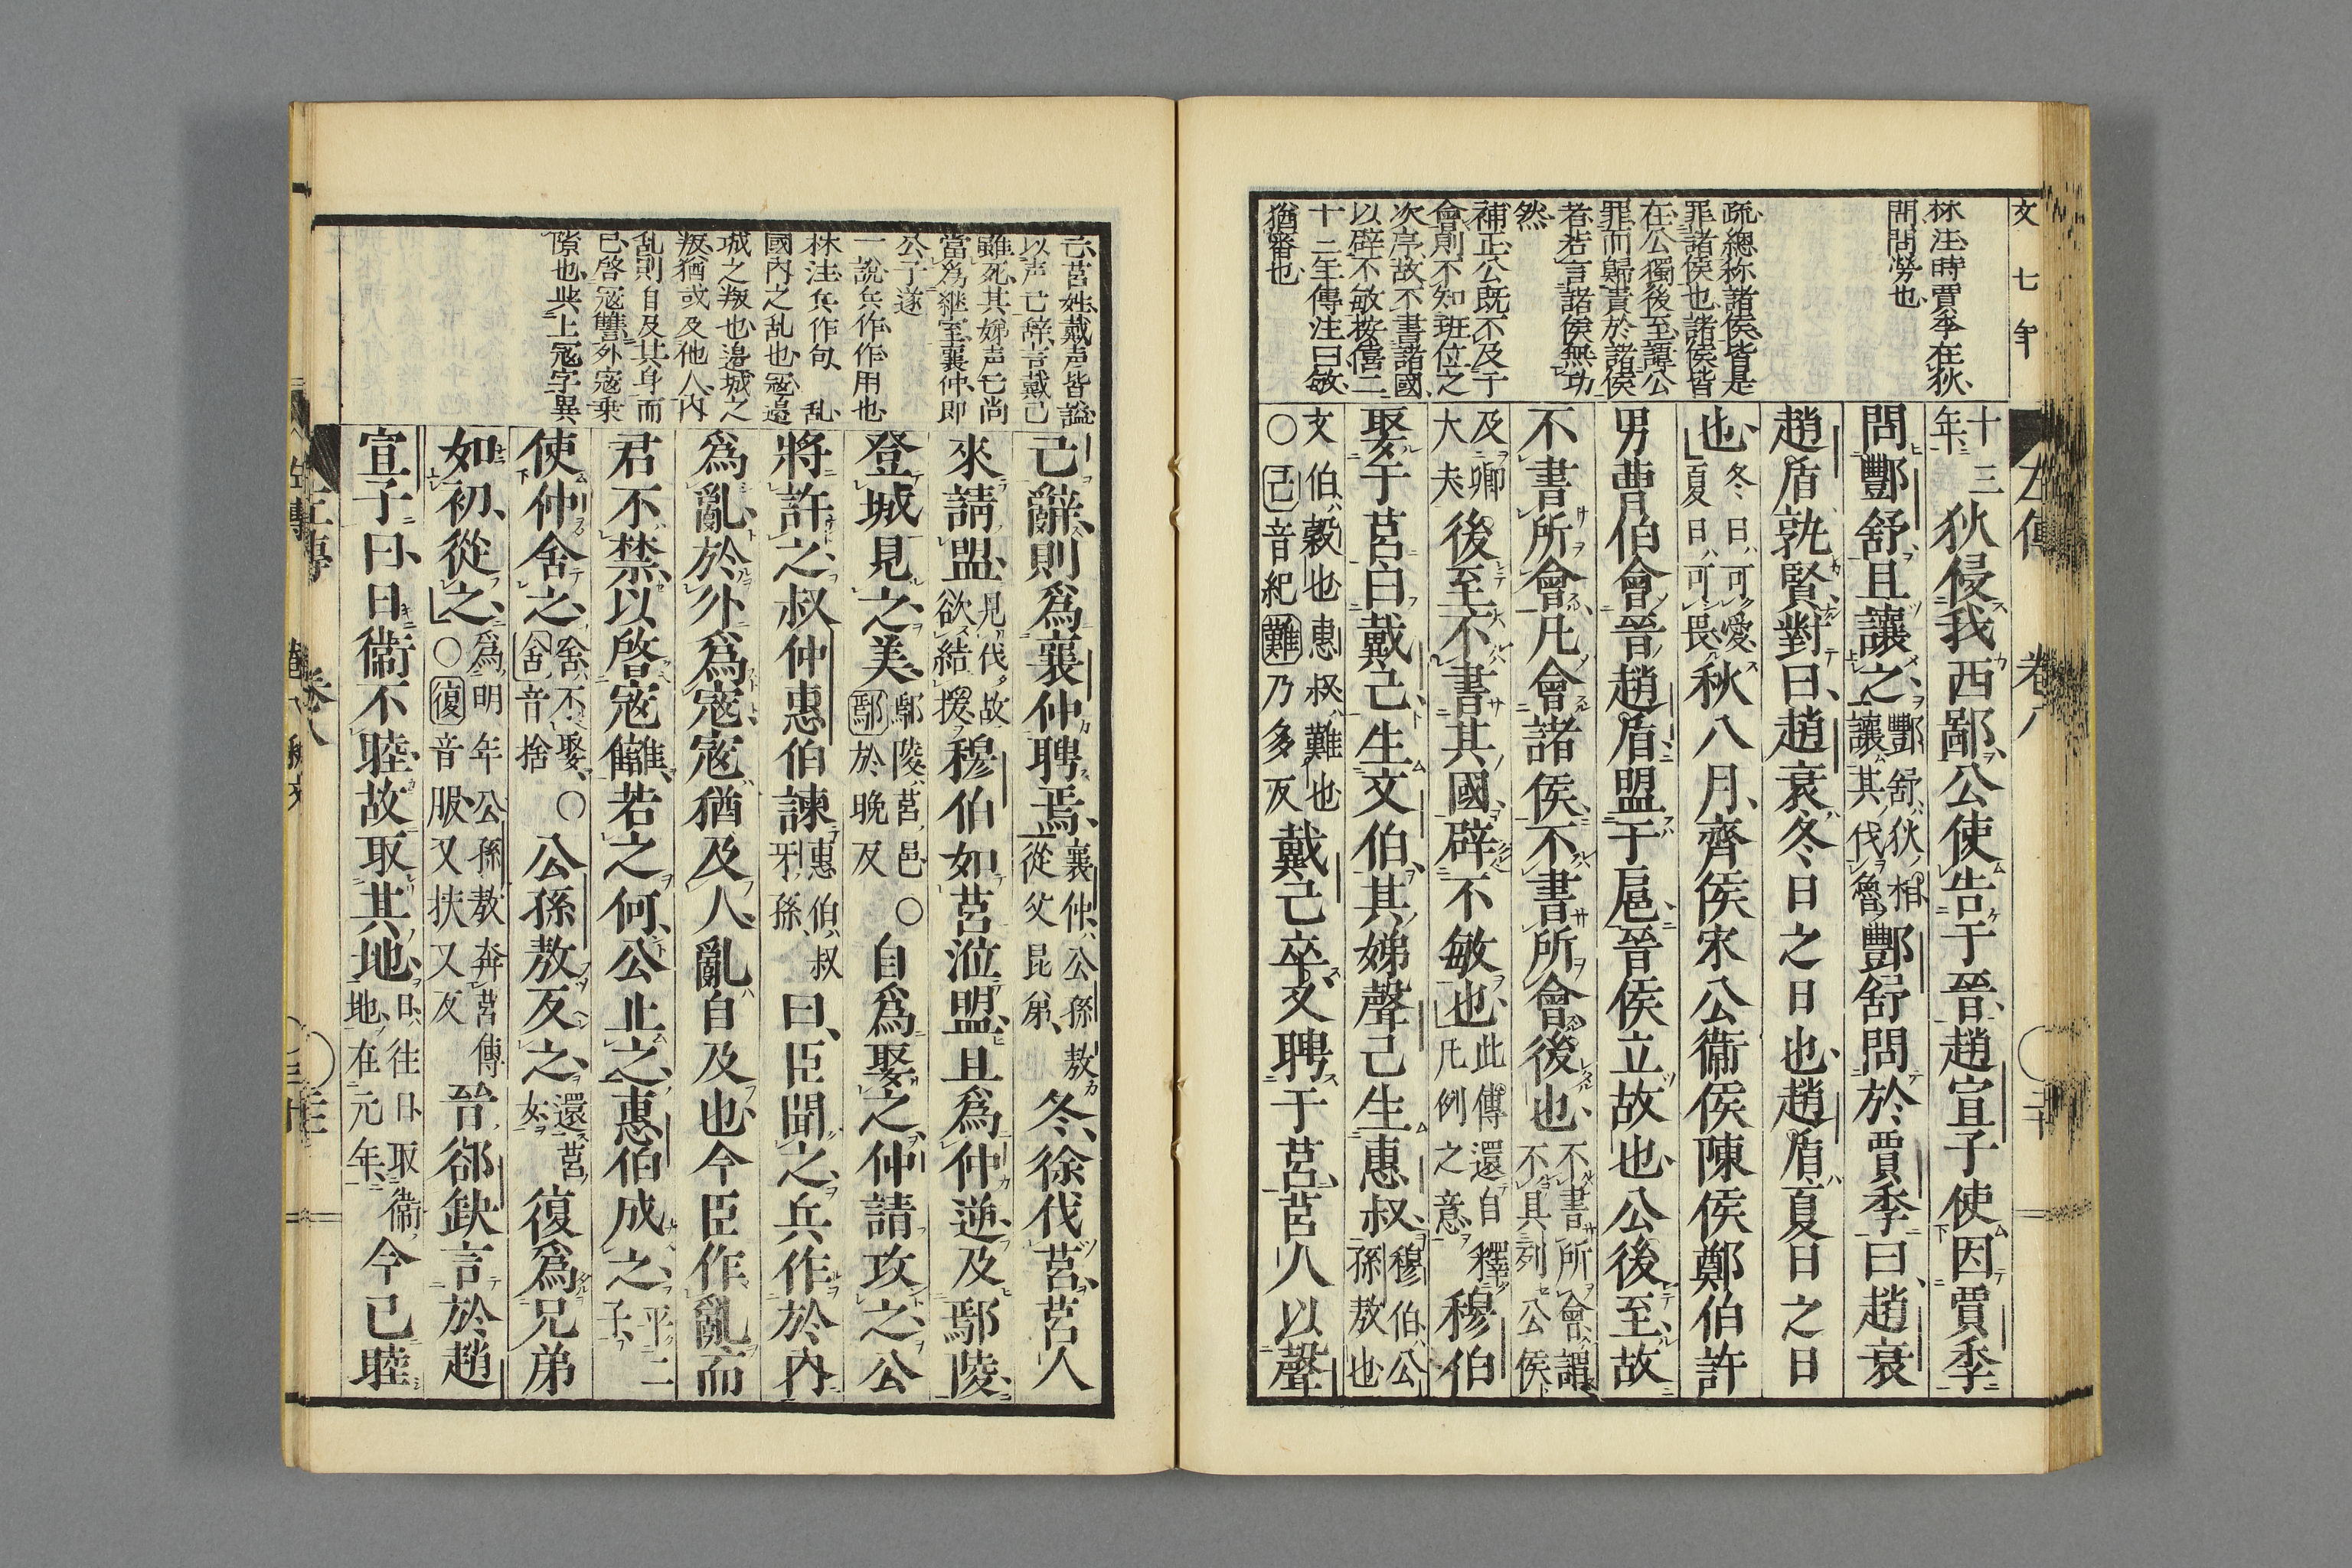 文七年
林注時賈季在狄
問問勞也
疏總称諸侯皆是
罪諸侯也諸侯皆
在公獨後至譚公
罪而歸責於諸侯
者若言諸侯無功
然
補正公既不及于
會則不知班位之
次序故不書諸國
以辟不敏按僖二
十二年傳注曰敏
猶審也
左傳 卷八
十三年狄侵我西鄙公使告于晉趙宣子使因賈季
問酆舒且讓之酆舒狄相讓其伐魯酆舒問於賈季曰趙衰
趙盾孰賢對曰趙衰冬日之日也趙盾夏日之日
也冬日可愛夏日可畏秋八月齊侯宋公衞侯陳侯鄭伯許
男曹伯會晉趙盾盟于扈晉侯立故也公後至故
不書所會凡會諸侯不書所會後也不書所會謂不具列公侯
及卿大夫後至不書其國辟不敏也此傳還自釋凡例之意穆伯
娶于莒曰戴己生文伯其娣聲己生惠叔穆伯公孫敖也
文伯穀也惠叔難也○己音紀難乃多反戴己卒又聘于莒莒人以聲
己莒姓戴声皆謚
以声己辞言戴己
雖死其娣声己尚
當為継室襄仲即
公子遂
一說兵作作用也
林注兵作句 乱
國内之乱也寇邉
城之叛也邉城之
叛猶或及他人内
乱則自及其身而
已啓寇讐外寇乗
隙也此上寇字異
己辭則爲襄仲聘焉襄仲公孫敖從父昆弟冬徐伐莒莒人
來請盟見伐故欲結援穆伯如莒涖盟且爲仲逆及鄢陵
登城見之美鄢陵莒邑鄢於晚反○自爲娶之仲請攻之公
將許之叔仲惠伯諫惠伯叔牙孫曰臣聞之兵作於内
爲亂於外爲寇寇猶及人亂自及也今臣作亂而
君不禁以啓寇讎若之何公止之惠伯成之平二子
使仲舍之舍不娶○舍音捨公孫敖反之還莒女復爲兄弟
如初從之爲明年公孫敖奔莒傳○復音服又扶又反晉郤缺言於趙
宣子曰日衞不睦故取其地日往日取衞地在元年今已睦
左傳 卷八